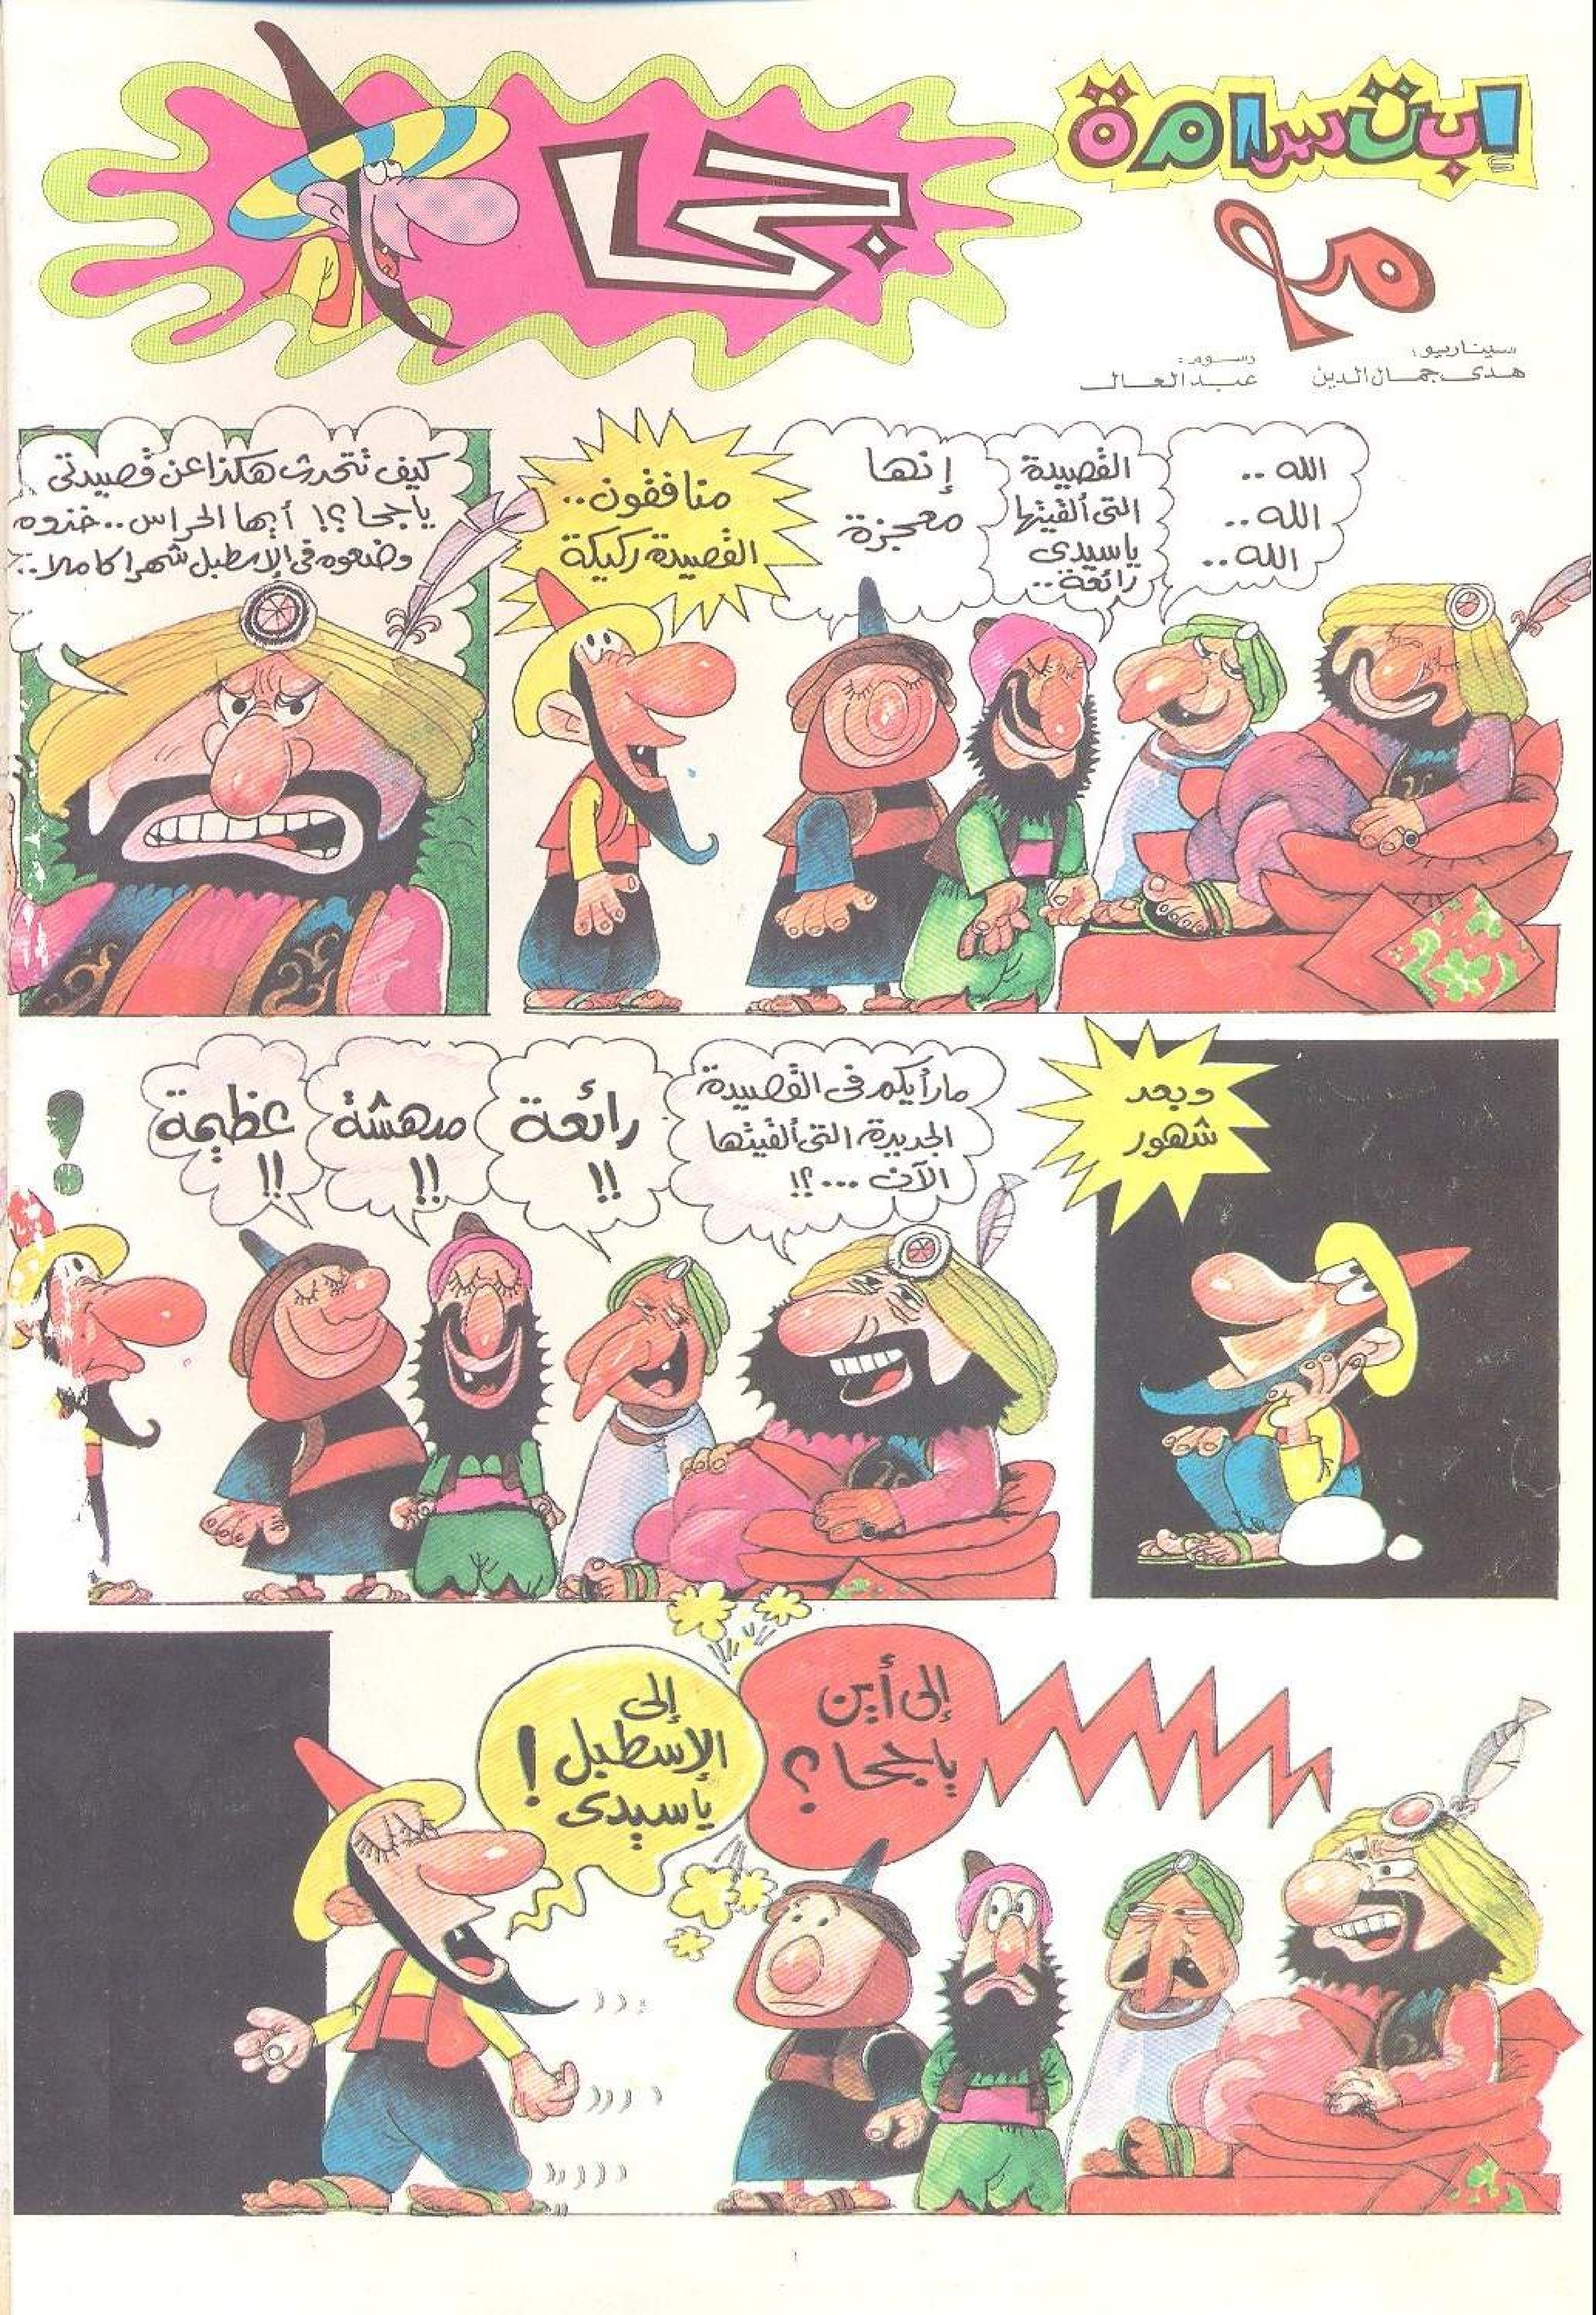 إبتسامة
مع
جحا
سيناريو:
هدى جمال الدين
رسوم:
عبد العال
الله ..
الله ..
الله ..
القصيدة
التى ألقيتها
ياسيدى
رائعة ..
إنها
معجزة
منافقون ..
القصيدة ركيكة
كيف تتحدث هكذا عن قصيدتى
ياجحا ؟! أيها الحراس .. خذوه
وضعوه فى الإسطبل شهرا كاملا ..
وبعد
شهور
ما رأيكم فى القصيدة
الجديدة التى ألقيتها
الآن ... ؟!
رائعة
!!
مدهشة
!!
عظيمة
!!
!
إلى أين
ياجحا ؟
إلى
الإسطبل
ياسيدى !
١